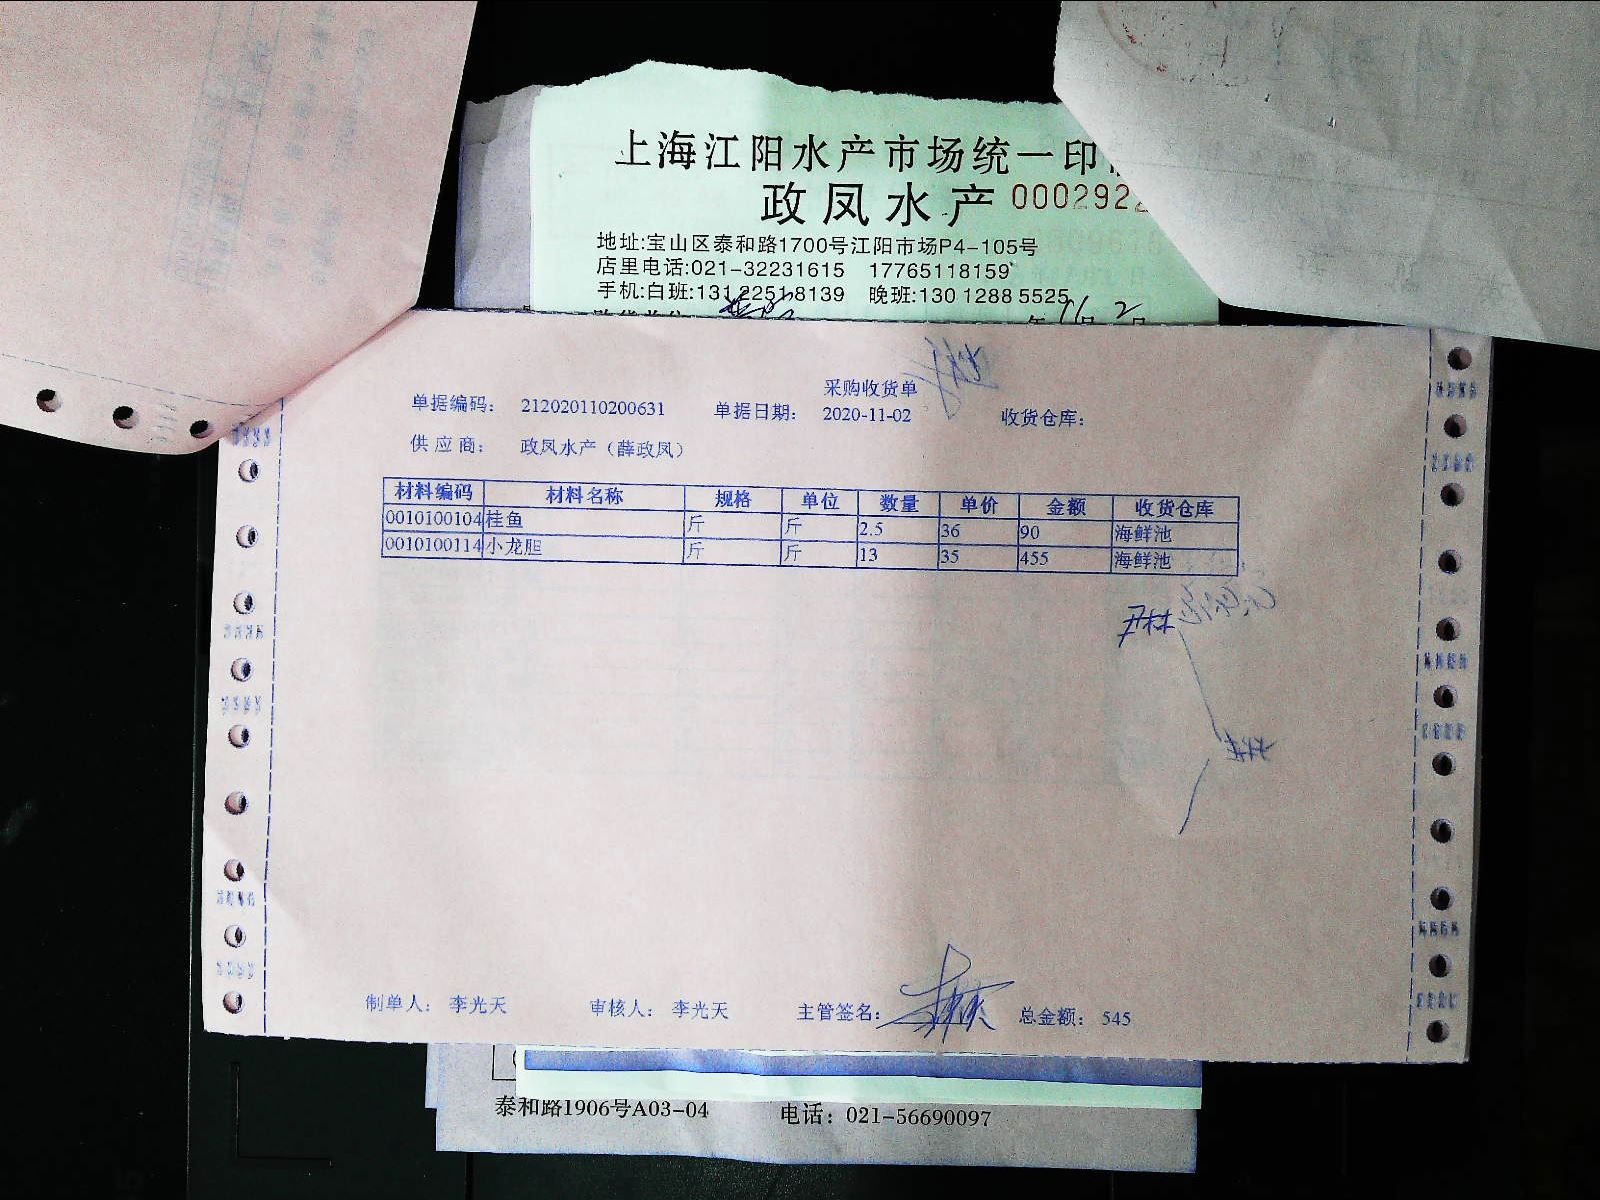 上海江阳水产市场统一印
政凤水产 000292
地址:宝山区泰和路1700号江阳市场P4-105号
店里电话:021-32231615 17765118159
手机:白班:131 2251 8139 晚班:130 1288 5525
采购收货单
单据编码: 212020110200631 单据日期: 2020-11-02 收货仓库:
供应商: 政凤水产(薛政凤)
材料编码 材料名称 规格 单位 数量 单价 金额 收货仓库
0010100104 桂鱼 斤 斤 2.5 36 90 海鲜池
0010100114 小龙胆 斤 斤 13 35 455 海鲜池
制单人: 李光天 审核人: 李光天 主管签名: 总金额: 545
泰和路1906号A03-04 电话: 021-56690097